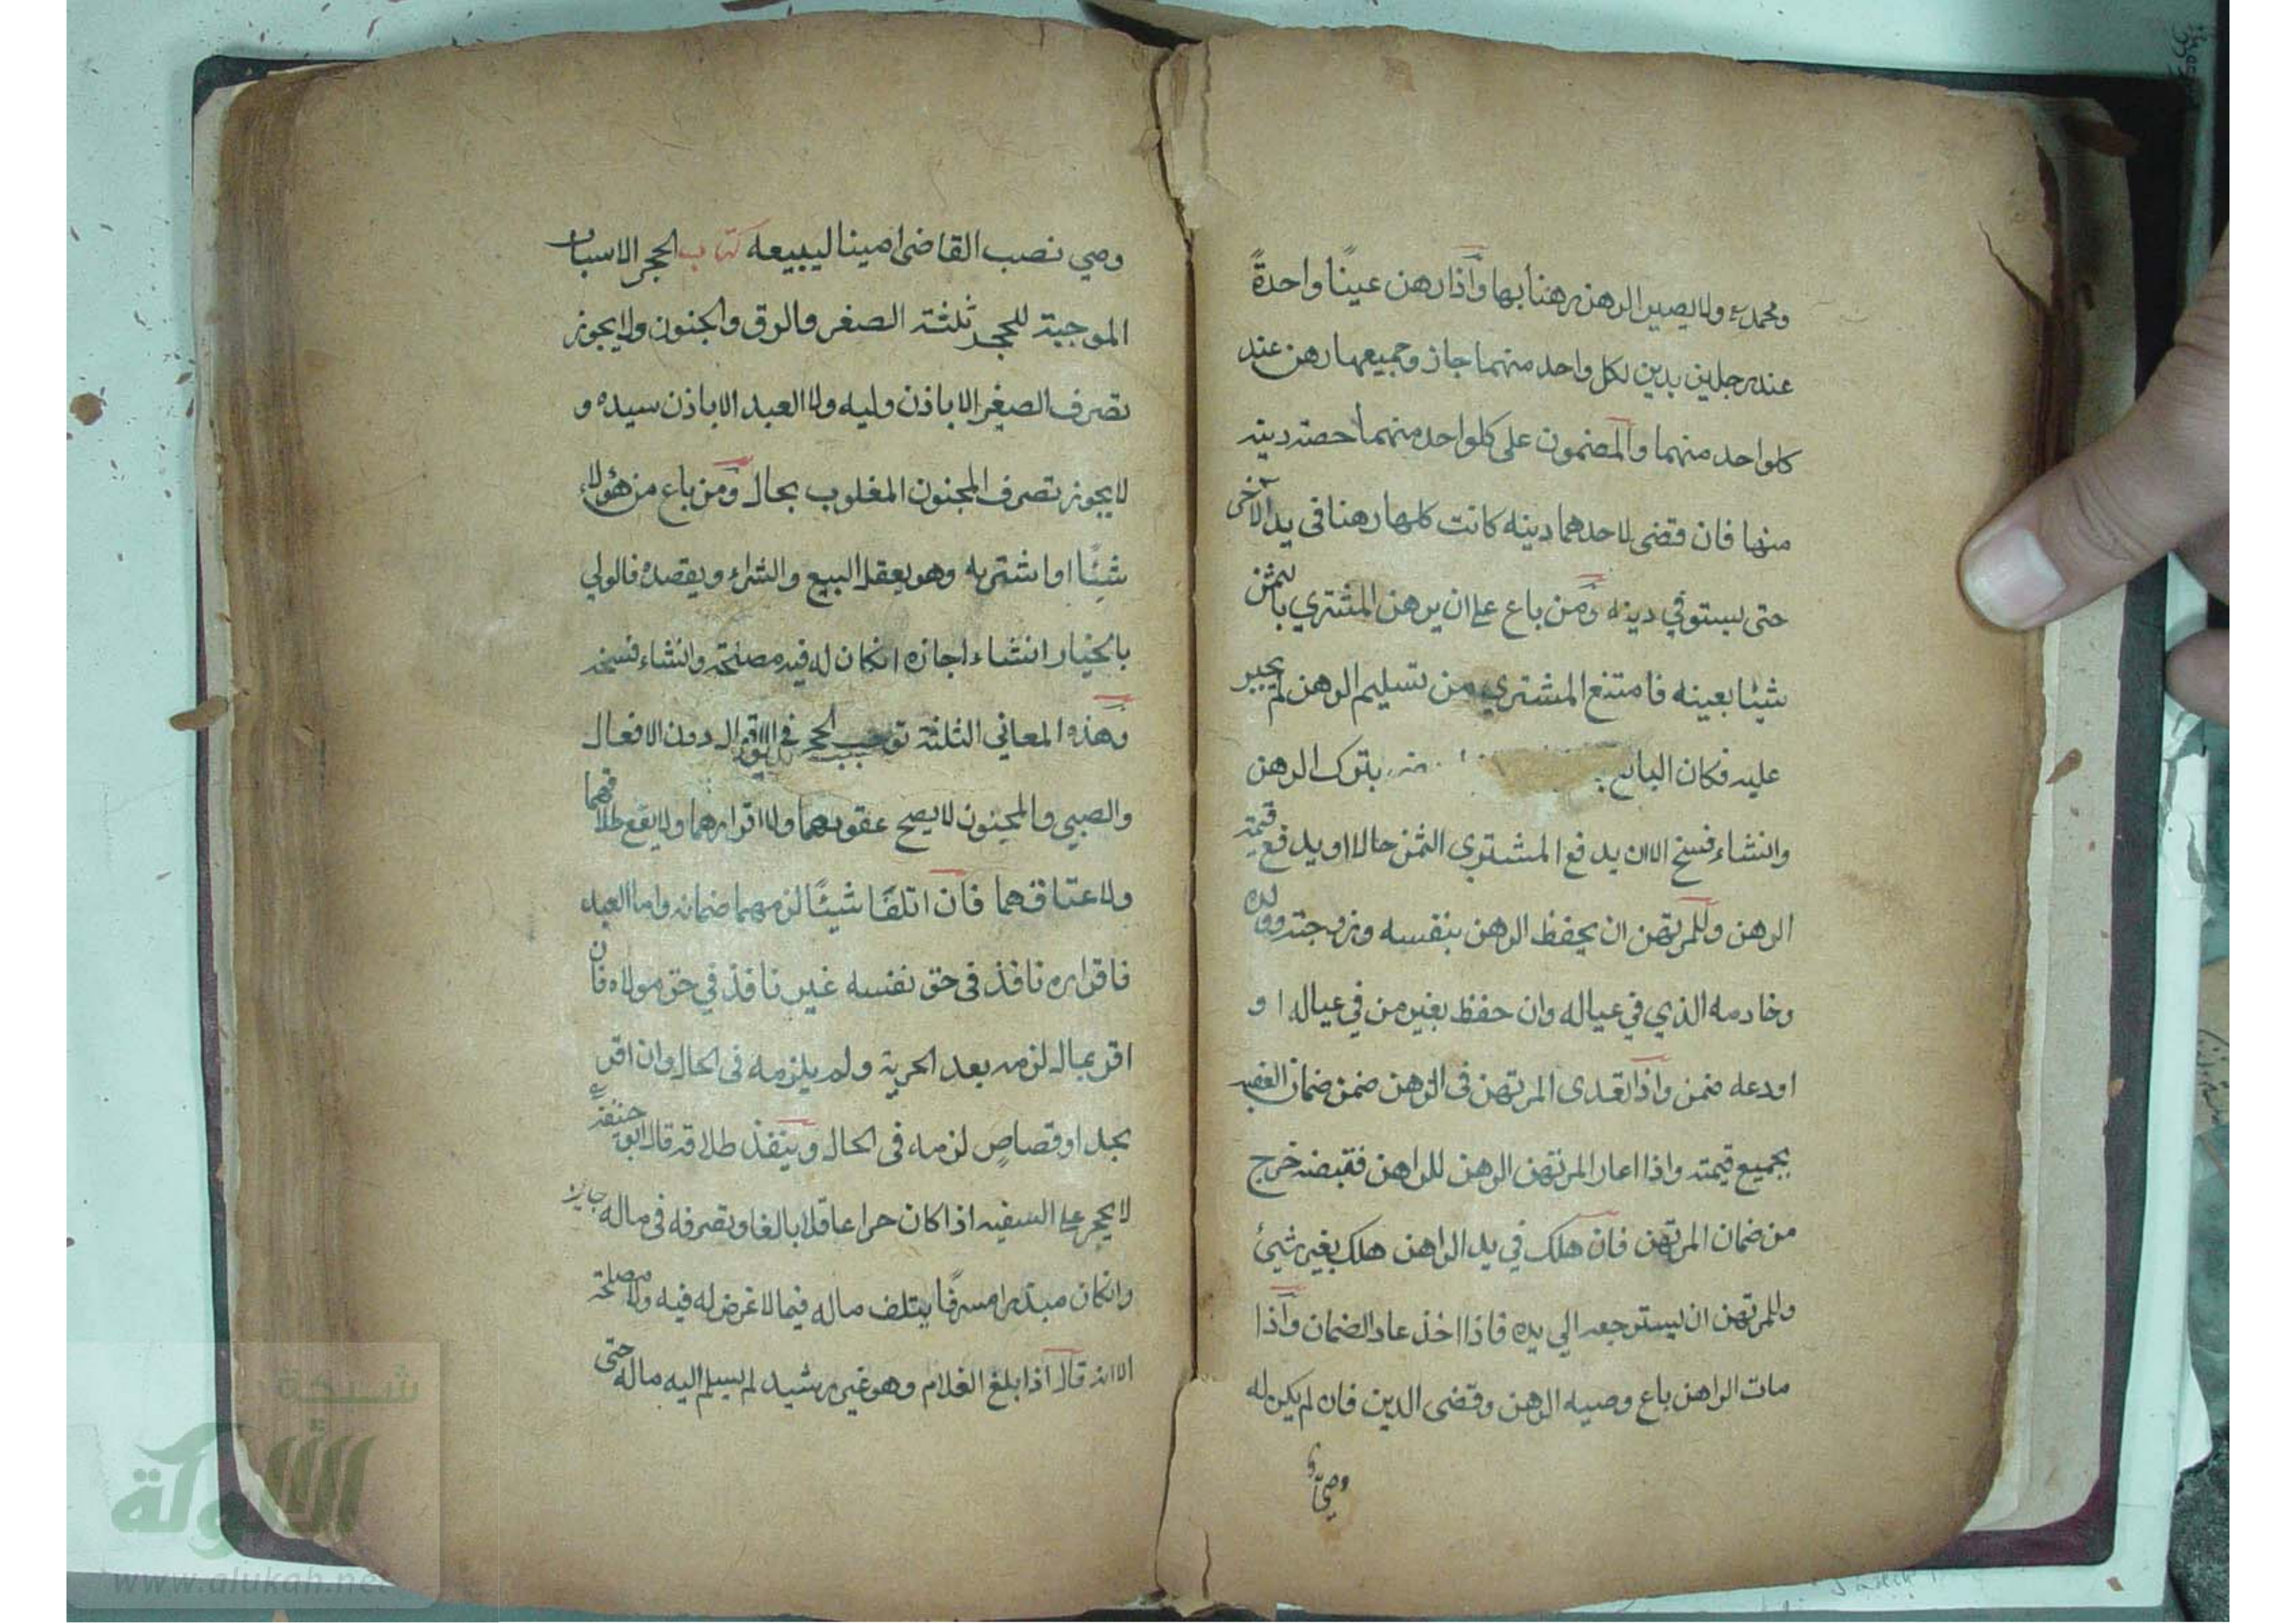 ومحمد رح ولا يصير الرهن رهنا بها وَاذا رهن عينًا واحدةً
عند رجلين بدين لكل واحد منهما جاز وجميعها رهن عند
كلواحد منهما والمضمون على كلواحد منهما حصته دينه
منها فان قضى لاحدهما دينه كانت كلها رهنا في يد الآخر
حتى يستوفي دينه وَمن باع على ان يرهن المشتري بالثمن
شيئا بعينه فامتنع المشتري من تسليم الرهن لم يجبر
عليه فكان البائع بترك الرهن
وانشاء فسخ الا ان يدفع المشتري الثمن حالا او يدفع قيمة
الرهن وللمرتهن ان يحفظ الرهن بنفسه وزوجته وولده
وخادمه الذي في عياله وان حفظ بغير من في عياله ا و
اودعه ضمن واذا تعدى المرتهن في الرهن ضمن ضمان الغصب
بجميع قيمته واذا اعار المرتهن الرهن للراهن فقبضه خرج
من ضمان المرتهن فان هلك في يد الراهن هلك بغير شيئ
وللمرتهن ان يسترجعه الي يده فاذا اخذ عاد الضمان وَاذا
مات الراهن باع وصيه الرهن وقضى الدين فان لم يكن له
وصيّ
وصي نصب القاضى امينا ليبيعه كتاب الحجر الاسباب
الموجبة للحجر ثلثة الصغر والرق والجنون ولا يجوز
تصرف الصغير الا باذن وليه ولا العبد الا باذن سيده و
لا يجوز تصرف المجنون المغلوب بحال وَمن باع من هؤلاء
شيئًا او اشتريه وهو يعقل البيع والشراء ويقصده فالولي
بالخيار انشاء اجازه انكان له فيه مصلحة وانشاء فسخه
وَهذه المعاني الثلثة توجب الحجر في الاقوال دون الافعال
والصبي والمجنون لا يصح عقودهما ولا اقرارهما ولا يقع طلاقهما
ولا عتاقهما فَان اتلفَا شيئًا لزمهما ضمانه واما العبد
فاقراره نافذ في حق نفسه غير نافذ في حق مولاه فان
اقر بمال لزمه بعد الحرية ولم يلزمه في الحال وان اقر
بحد او قصاصٍ لزمه في الحال وينفذ طلاقه قال ابو حنيفة رح
لا يحجر على السفيه اذا كان حرا عاقلا بالغا وتصرفه في ماله جايز
وانكان مبذرا مسرفًا يتلف ماله فيما لا غرض له فيه ولا مصلحة
الا انه قال اذا بلغ الغلام وهو غير رشيد لم يسلم اليه ماله حتى
شبكة
الألوكة
www.alukah.net